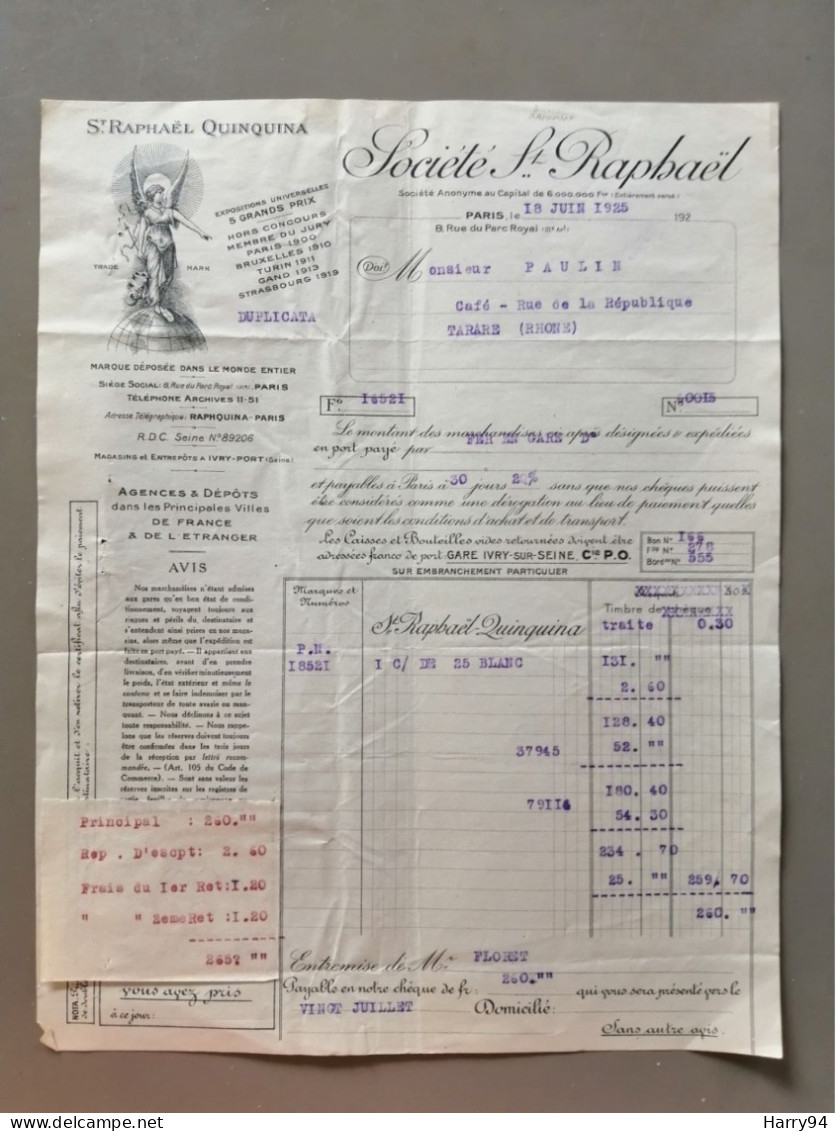 St. RAPHAËL QUINQUINA
TRADE MARK
EXPOSITIONS UNIVERSELLES
5 GRANDS PRIX
HORS CONCOURS
MEMBRE DU JURY
PARIS 1900
BRUXELLES 1910
TURIN 1911
GAND 1913
STRASBOURG 1919
DUPLICATA
MARQUE DÉPOSÉE DANS LE MONDE ENTIER
SIÈGE SOCIAL: 8, Rue du Parc Royal PARIS
TÉLÉPHONE ARCHIVES 11-51
Adresse Télégraphique: RAPHQUINA-PARIS
R.D.C. Seine N° 89206
MAGASINS et ENTREPÔTS A IVRY-PORT (Seine)
AGENCES & DÉPÔTS
dans les Principales Villes
DE FRANCE
& DE L'ETRANGER
AVIS
Nos marchandises n'étant admises
aux gares qu'en bon état de con-
ditionnement, voyagent toujours aux
risques et périls du destinataire et
s'entendent ainsi prises en nos maga-
sins, alors même que l'expédition est
faite en port payé. — Il appartient aux
destinataires, avant d'en prendre
livraison, d'en vérifier minutieusement
le poids, l'état extérieur et même le
contenu et se faire indemniser par le
transporteur de toute avarie ou man-
quant. — Nous déclinons à ce sujet
toute responsabilité. — Nous rappe-
lons que les réserves doivent toujours
être confirmées dans les trois jours
de la réception par lettre recom-
mandée. — (Art. 105 du Code de
Commerce). — Sont sans valeur les
réserves inscrites sur les registres de
Principal : 260.""
Rep . D'escpt: 2. 60
Frais du Ier Ret:I.20
" " 2emeRet :I.20
265? ""
vous avez pris
à ce jour:
Société St. Raphaël
Société Anonyme au Capital de 6.000.000 Frs (Entièrement versé)
PARIS, le 18 JUIN 1925 192
8, Rue du Parc Royal (IIIe Arrt)
Doit Monsieur PAULIN
Café - Rue de la République
TARARE (RHONE)
F° 18521
N° 0015
Le montant des marchandises ci après désignées & expédiées
en port payé par FER EN GARE De
et payables à Paris à 30 jours 2 % sans que nos chèques puissent
être considérés comme une dérogation au lieu de paiement quelles
que soient les conditions d'achat et de transport.
Les Caisses et Bouteilles vides retournées doivent être
adressées franco de port, GARE IVRY-SUR-SEINE, Cie P.O.
SUR EMBRANCHEMENT PARTICULIER
Bon N° 166
Flle N° 278
Borau N° 555
Marques et
Numéros
Timbre de chèque
traite 0.30
St. Raphaël-Quinquina
P.N.
18521 I C/ DE 25 BLANC 131. ""
2. 60
128. 40
37945 52. ""
180. 40
79114 54. 30
234 . 70
25. "" 259. 70
260. ""
Entremise de Mr FLORET
Payable en notre chèque de fr: 260."" qui vous sera présenté vers le
VINGT JUILLET Domicilié:
Sans autre avis.
Harry94